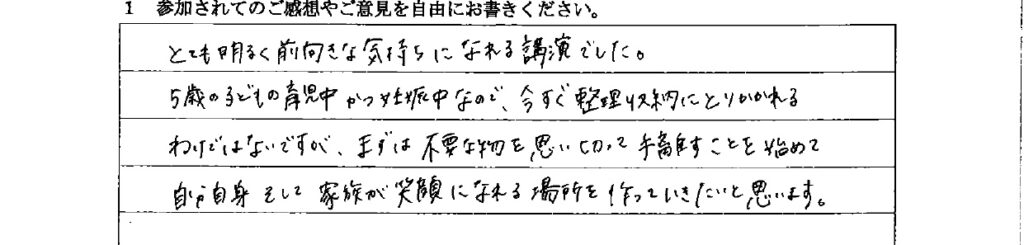 1 参加されてのご感想やご意見を自由にお書きください。
とても明るく前向きな気持ちになれる講演でした。
5歳の子どもの育児中かつ妊娠中なので、今すぐ整理収納にとりかかれる
わけではないですが、まずは不要な物を思い切って手離すことを始めて
自分自身そして家族が笑顔になれる場所を作っていきたいと思います。